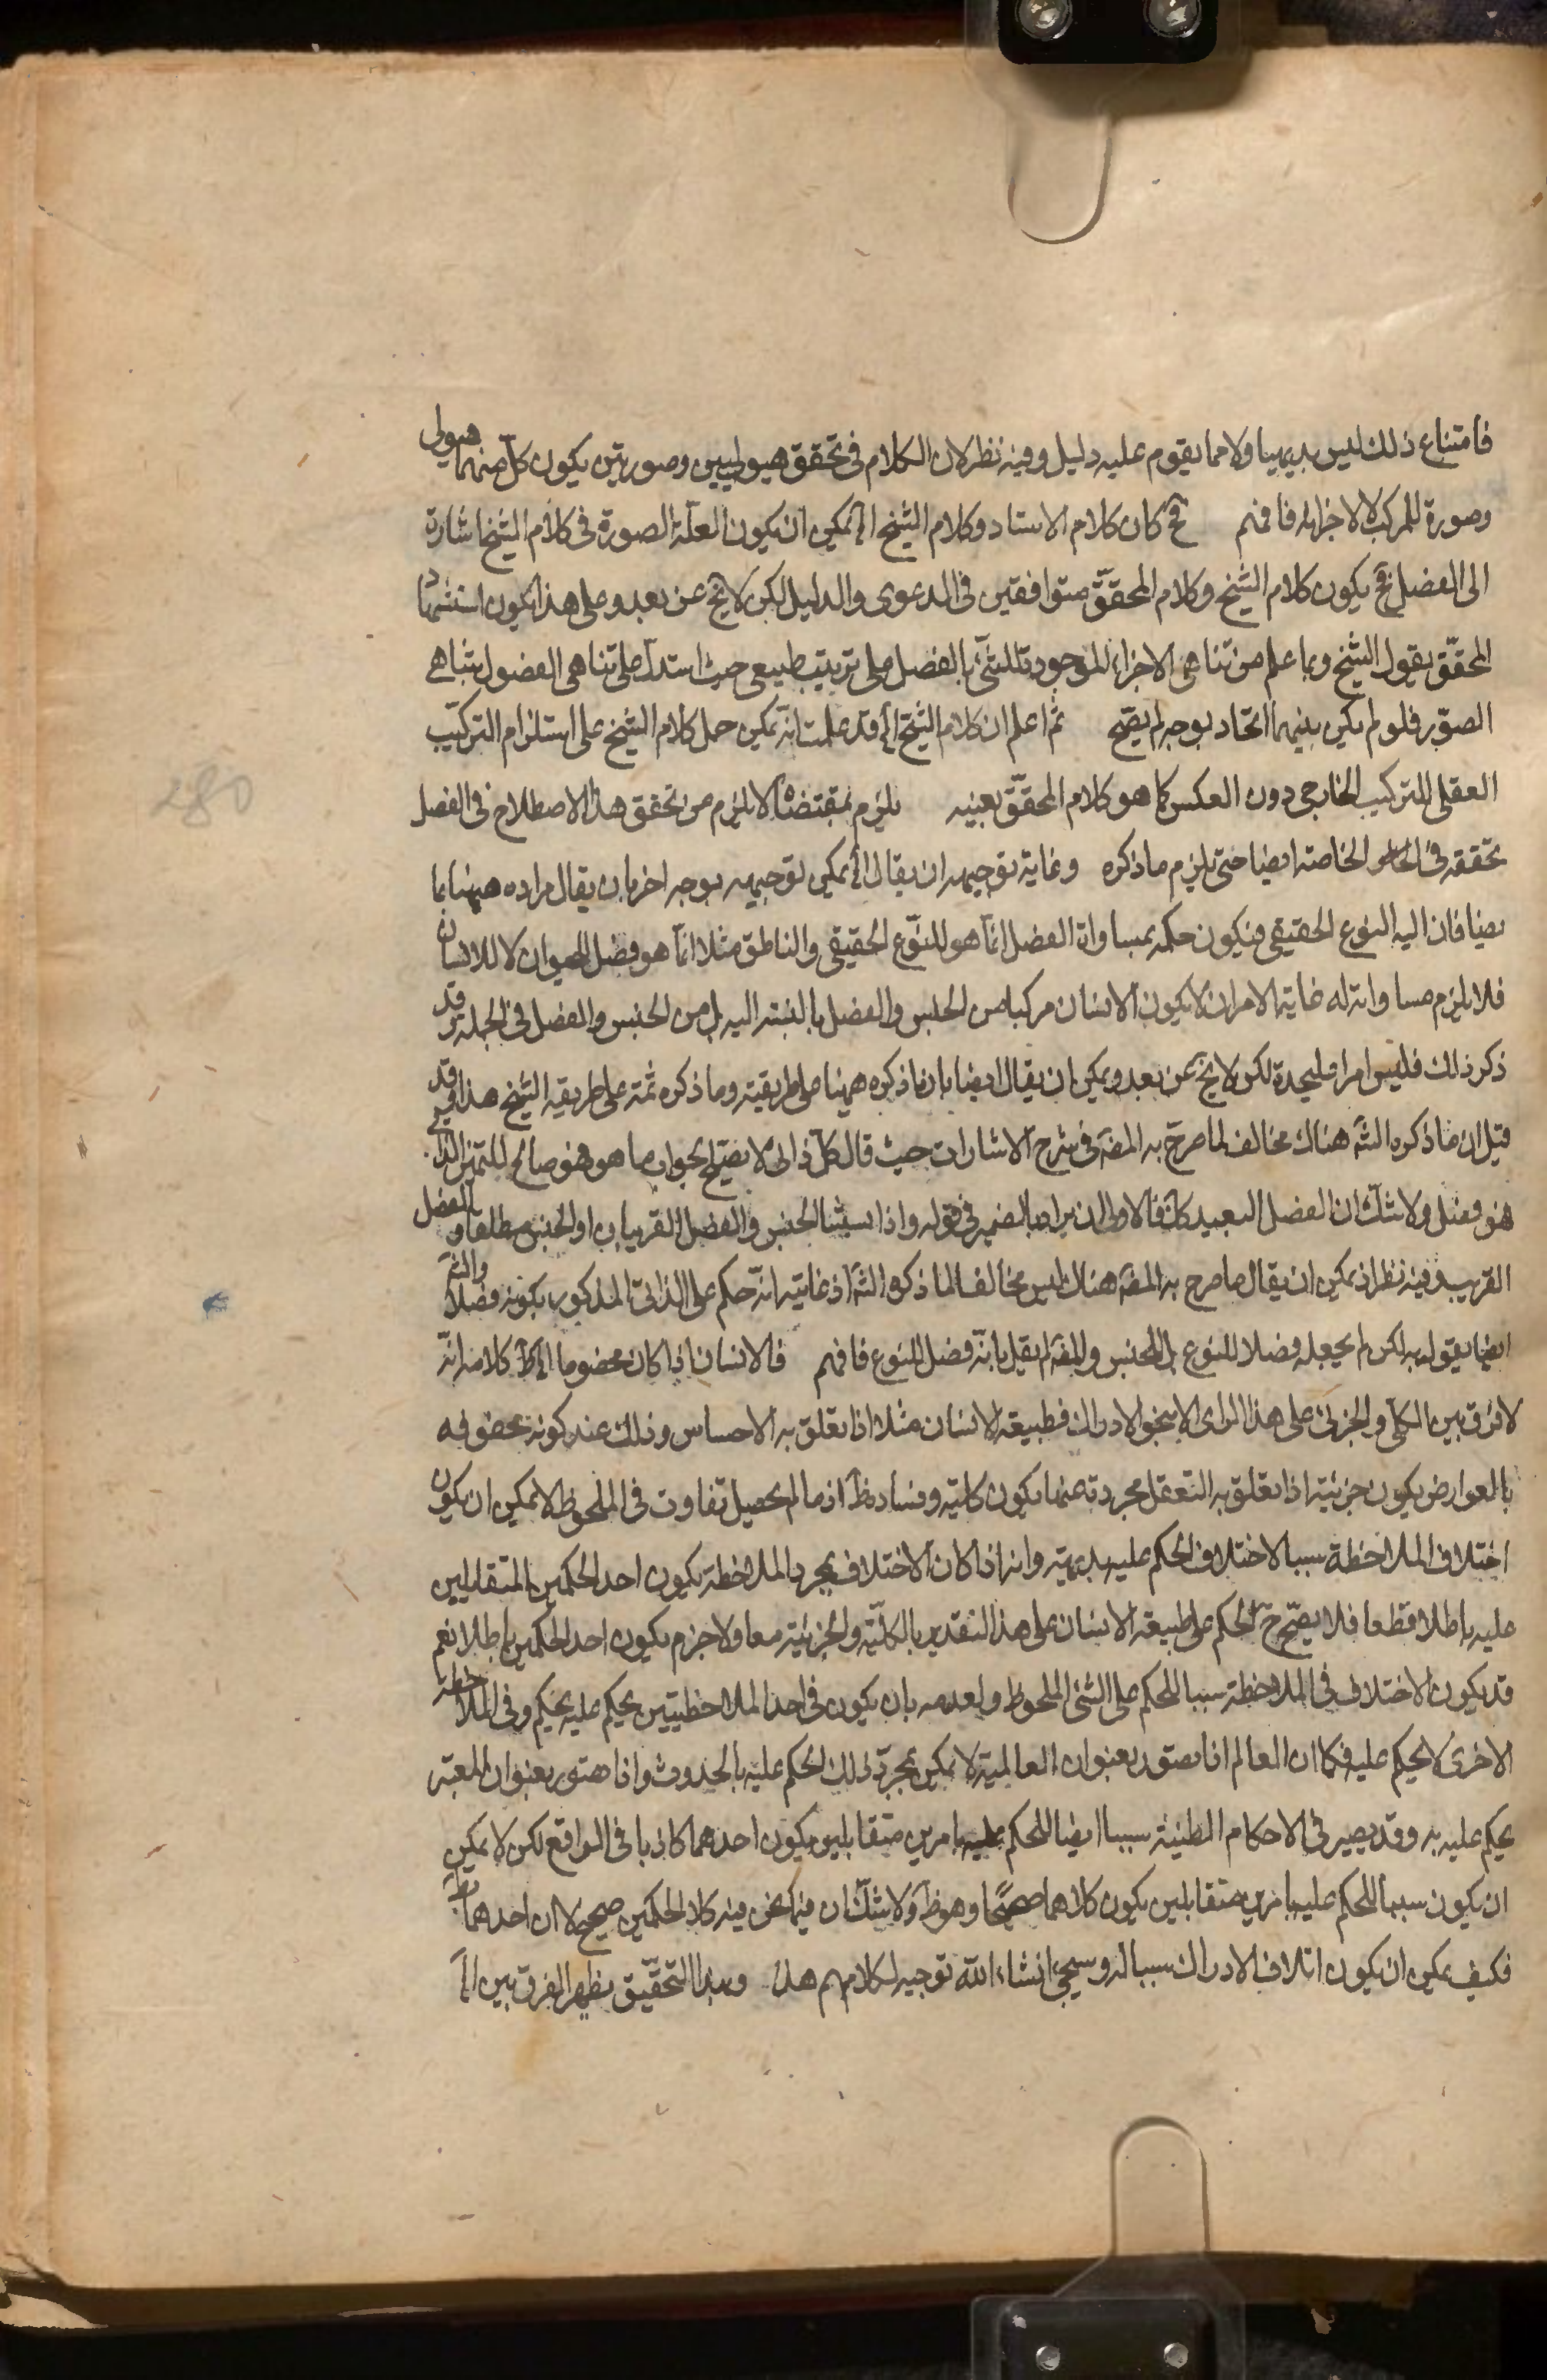 فامتناع ذلك ليس بديهيا ولا مما يقوم عليه دليل وفيه نظر لان الكلام في تحقق هيوليين وصورتين يكون كل منهما هيولى
وصورة للمركب لا لاجزائه فافهم فح كان كلام الاستاد وكلام الشيخ الخ يمكن ان يكون العلة الصورة في كلام الشيخ اشارة
الى الفصل فح يكون كلام الشيخ وكلام المحقق متوافقين في الدعوى والدليل لكن لا يخ عن بعد وعلى هذا يكون استشهاد
المحقق بقول الشيخ وبما علم من تناهى الاجزاء الموجودة للشئ بالفصل على ترتيب طبيعى حيث استدل على تناهى الفصول بتناهى
الصور فلو لم يكن بينهما اتحاد بوجه لم يصح ثم اعلم ان كلام الشيخ الخ قد علمت انه يمكن حمل كلام الشيخ على استلزام التركيب
العقلى للتركيب الخارجى دون العكس كما هو كلام المحقق بعينه يلزم بمقتضاه لا يلزم من تحقق هذا الاصطلاح في الفصل
تحققه في الخاصة ايضا حتى يلزم ما ذكره وغاية توجيهه ان يقال الخ يمكن توجيهه بوجه اخر بان يقال مراده ههنا بما
يضاف اليه النوع الحقيقي فيكون حكمه بمساواة الفصل انما هو للنوع الحقيقي والناطق مثلا انما هو فصل للحيوان لا للانسان
فلا يلزم مساواته له غاية الامر ان لا يكون الانسان مركبا من الجنس والفصل بالنسبة اليه بل من الجنس والفصل في الجملة وقد
ذكر ذلك فليس امرا فليحدة لكن لا يخ عن بعد ويمكن ان يقال ايضا بان ما ذكره ههنا على طريقته وما ذكره ثمة على طريقة الشيخ هذا وقد
قيل ان ما ذكره الشه هناك مخالف لما صرح به المصه في شرح الاشارات حيث قال كل ذاتى لا يصلح لجواب ما هو فهو صالح للتميز الذاتي
فهو فصل ولا شك ان الفصل البعيد كك فالاولى ان يراد بالضمير في قوله واذا نسبنا الجنس والفصل القريبان او الجنس مطلقا والفصل
القريب وفيه نظر اذ يمكن ان يقال ما صرح به المصه هناك ليس مخالفا لما ذكره الشه اذ غايته انه حكم على الذاتى المذكور بكونه فصلا والشه
ايضا يقول به لكن لم يجعله فصلا للنوع بل للجنس والمصه لم يقل بانه فصل للنوع فافهم فالانسان اذا كان محضوما الخ كلامه انه
لا فرق بين الكلى والجزئى على هذا الراى الا بنحو الادراك فطبيعة الانسان مثلا اذا تعلق به الاحساس وذلك عند كونه محفوفه
بالعوارض يكون جزئية اذا تعلق به التعقل مجردة عنها يكون كلية وفساده ظ اذ ما لم يحصل تفاوت في الملحوظ لا يمكن ان يكون
اختلاف الملاحظة سببا لاختلاف الحكم عليه بديهة وانه اذا كان الاختلاف بمجرد الملاحظة يكون احد الحكمين المتقابلين
عليه باطلا قطعا فلا يصح ح الحكم على طبيعة الانسان على هذا التقدير بالكلية والجزئية معا ولا جزم يكون احد الحكمين باطلا نعم
قد يكون الاختلاف في الملاحظة سببا للحكم على الشئ الملحوظ ولعدمه بان يكون في احد الملاحظتين يحكم عليه بحكم وفي الملاحظة
الاخرى لا يحكم عليه فكما ان العالم اذا تصور بعنوان العالمية لا يمكن بمجرد ذلك الحكم عليه بالحدوث واذا تصور بعنوان المتغير
يحكم عليه به وقد يصير في الاحكام الظنية سببا ايضا للحكم عليه بامرين متقابلين يكون احدهما كاذبا في الواقع لكن لا يمكن
ان يكون سببا للحكم عليه بامرين متقابلين يكون كلاهما صحيحا وهو ظ ولا شك ان فيما نحن فيه كلا الحكمين صحيح لا ان احدهما بط
فكيف يمكن ان يكون اختلاف الادراك سببا له وسيجئ انشاء الله توجيه لكلامهم هذا وبهذا التحقيق يظهر الفرق بين الخ
280